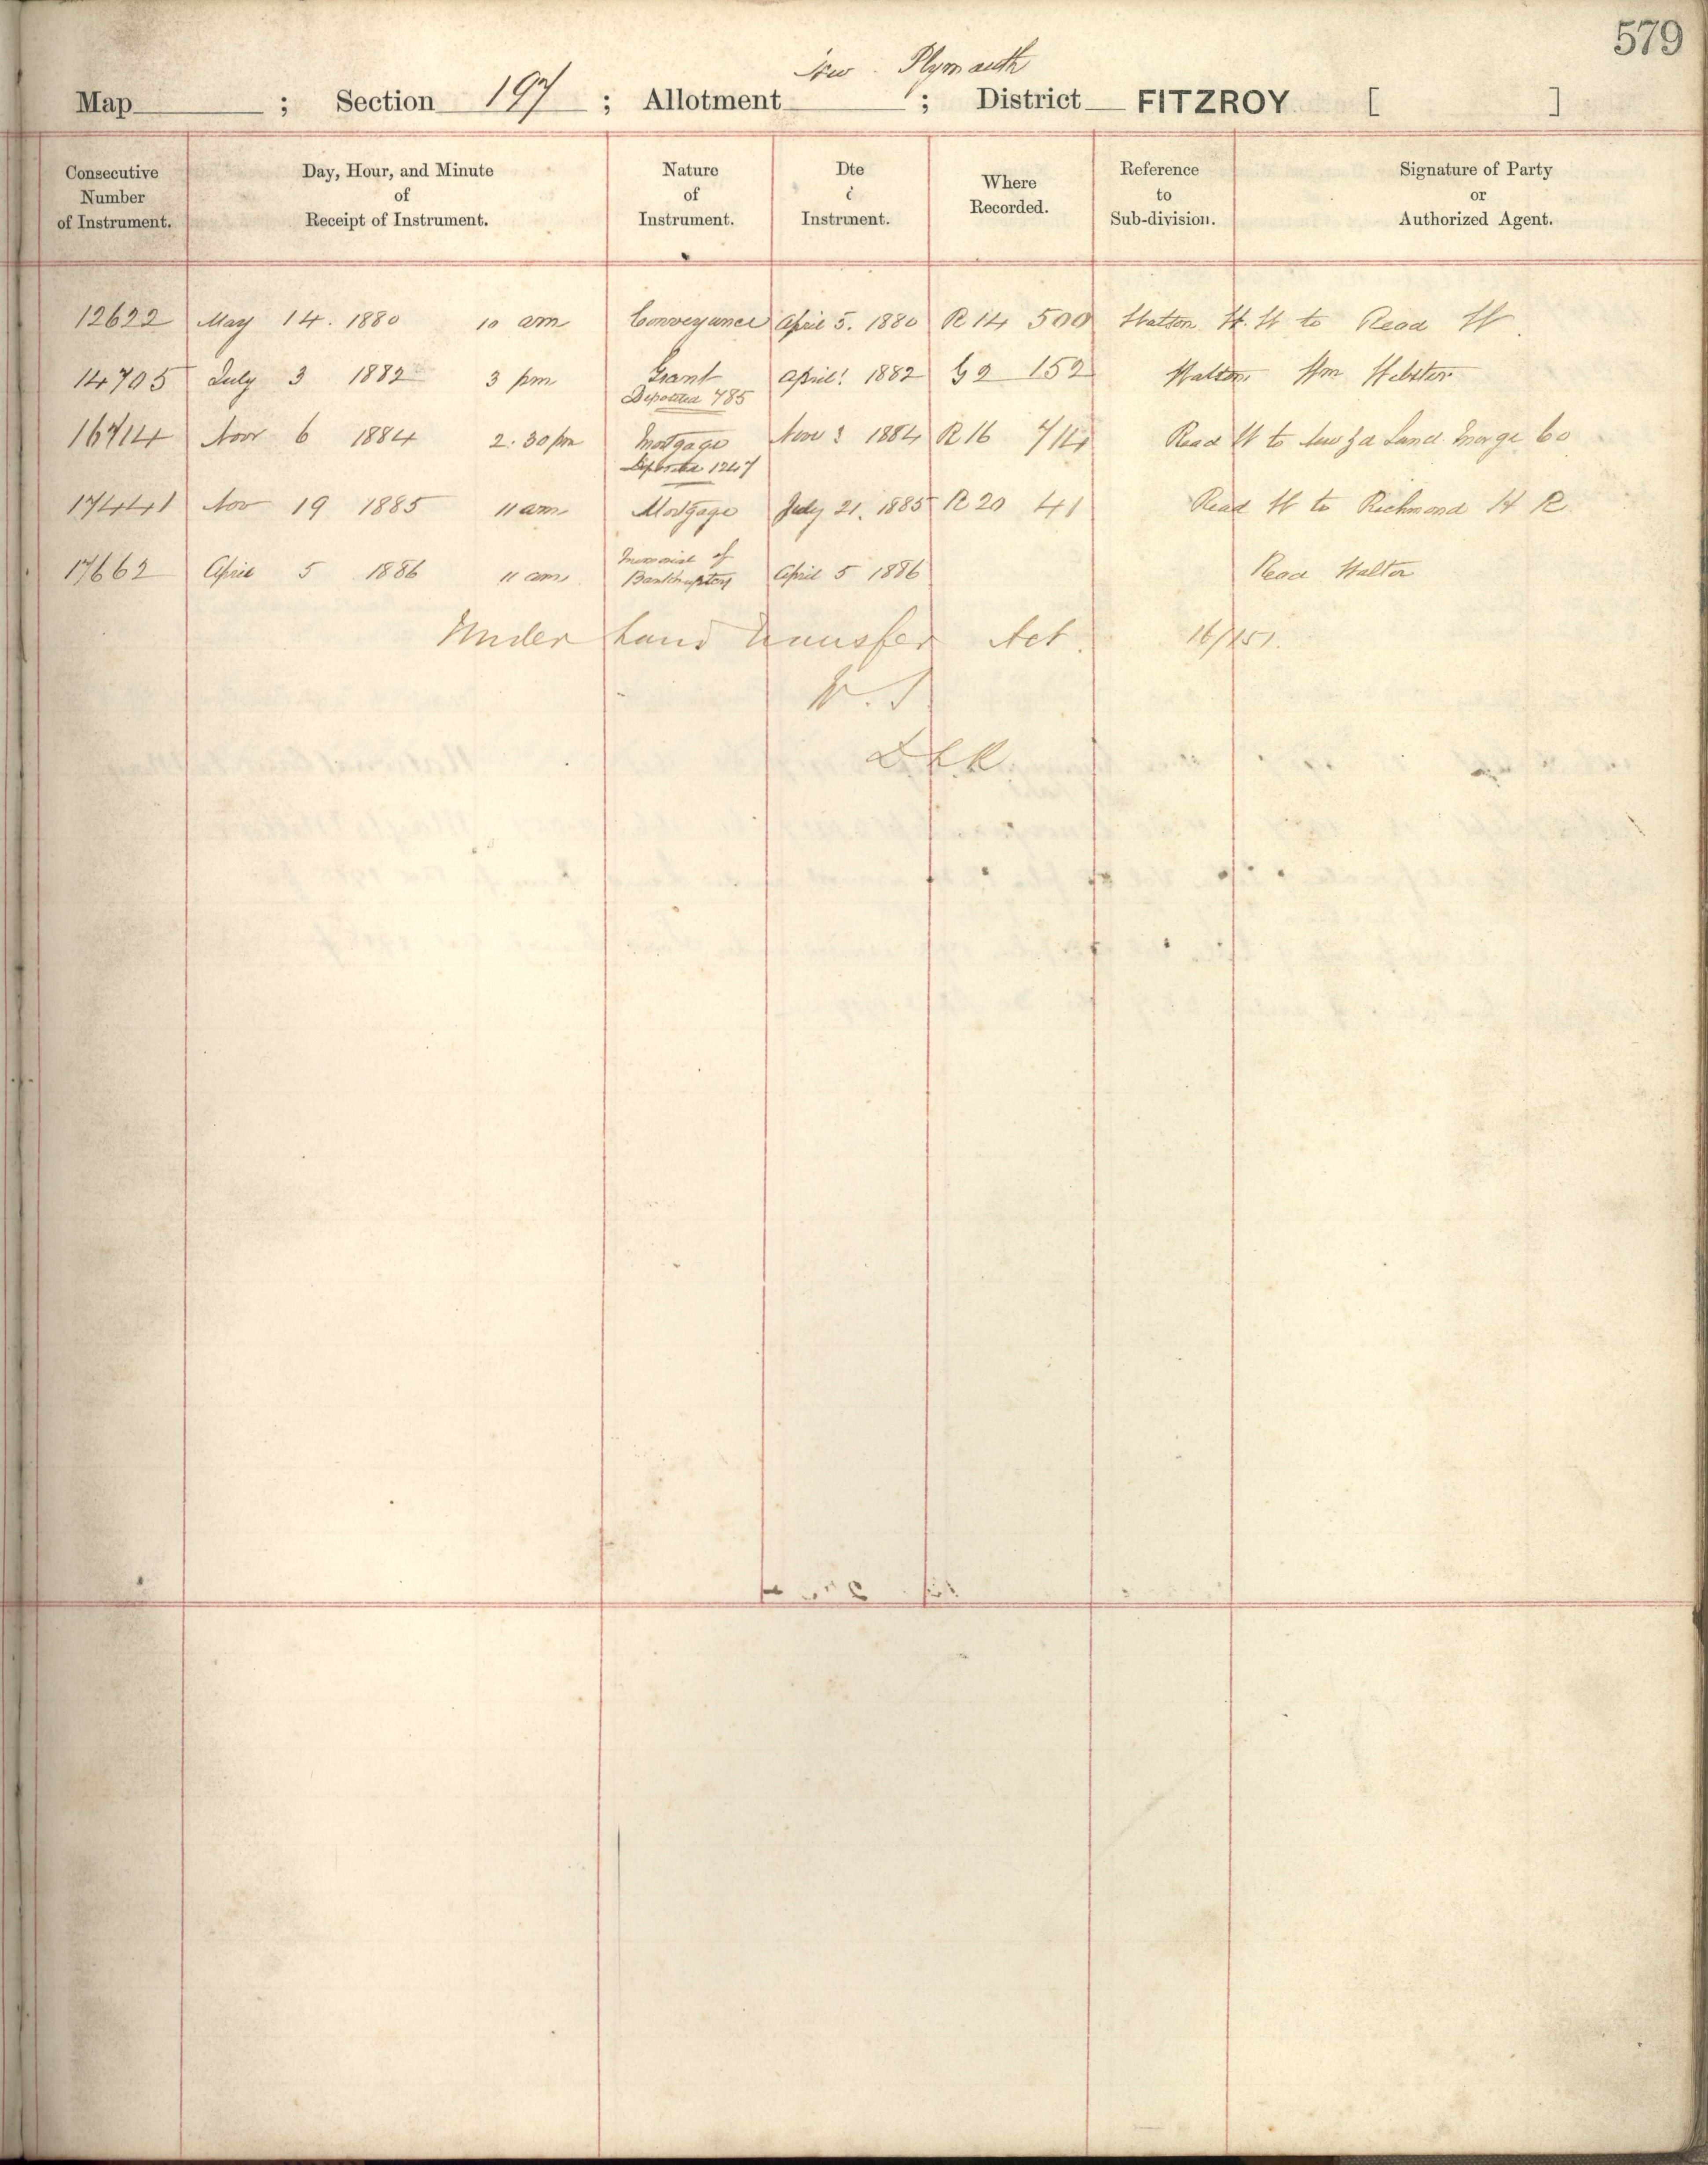 579
New Plymouth
Map ; Section 197 ; Allotment ; District FITZROY [ ]
Consecutive Number of Instrument.
Day, Hour, and Minute of Receipt of Instrument.
Nature of Instrument.
Dte Instrment.
Where Recorded.
Reference to Sub-division.
Signature of Party or Authorized Agent.
12622 May 14. 1880 10 am Conveyance April 5. 1880 R 14 500 Watson W. W to Read W
14705 July 3 1882 3 pm Grant April 1 1882 G 2 152 Watson Wm Webster
Deposited 785
16714 Novr 6 1884 2.30 pm Mortgage Nov 3 1884 R 16 714 Read W to New Zd Land Morge Co
Deposited 1247
17441 Nov 19 1885 11 am Mortgage July 21. 1885 R 20 41 Read W to Richmond H R
17662 April 5 1886 11 am Memorial of Bankruptcy April 5 1886 Read Walter
Under Land Transfer Act. 16/151.